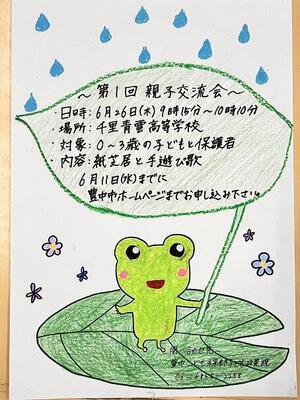 ～第1回 親子交流会～
・日時：6月26日(木)9時15分～10時10分
・場所：千里青雲高等学校
・対象：0～3歳の子どもと保護者
・内容：紙芝居と手遊び歌
6月11日(水)までに
豊中市ホームページまでお申し込み下さい